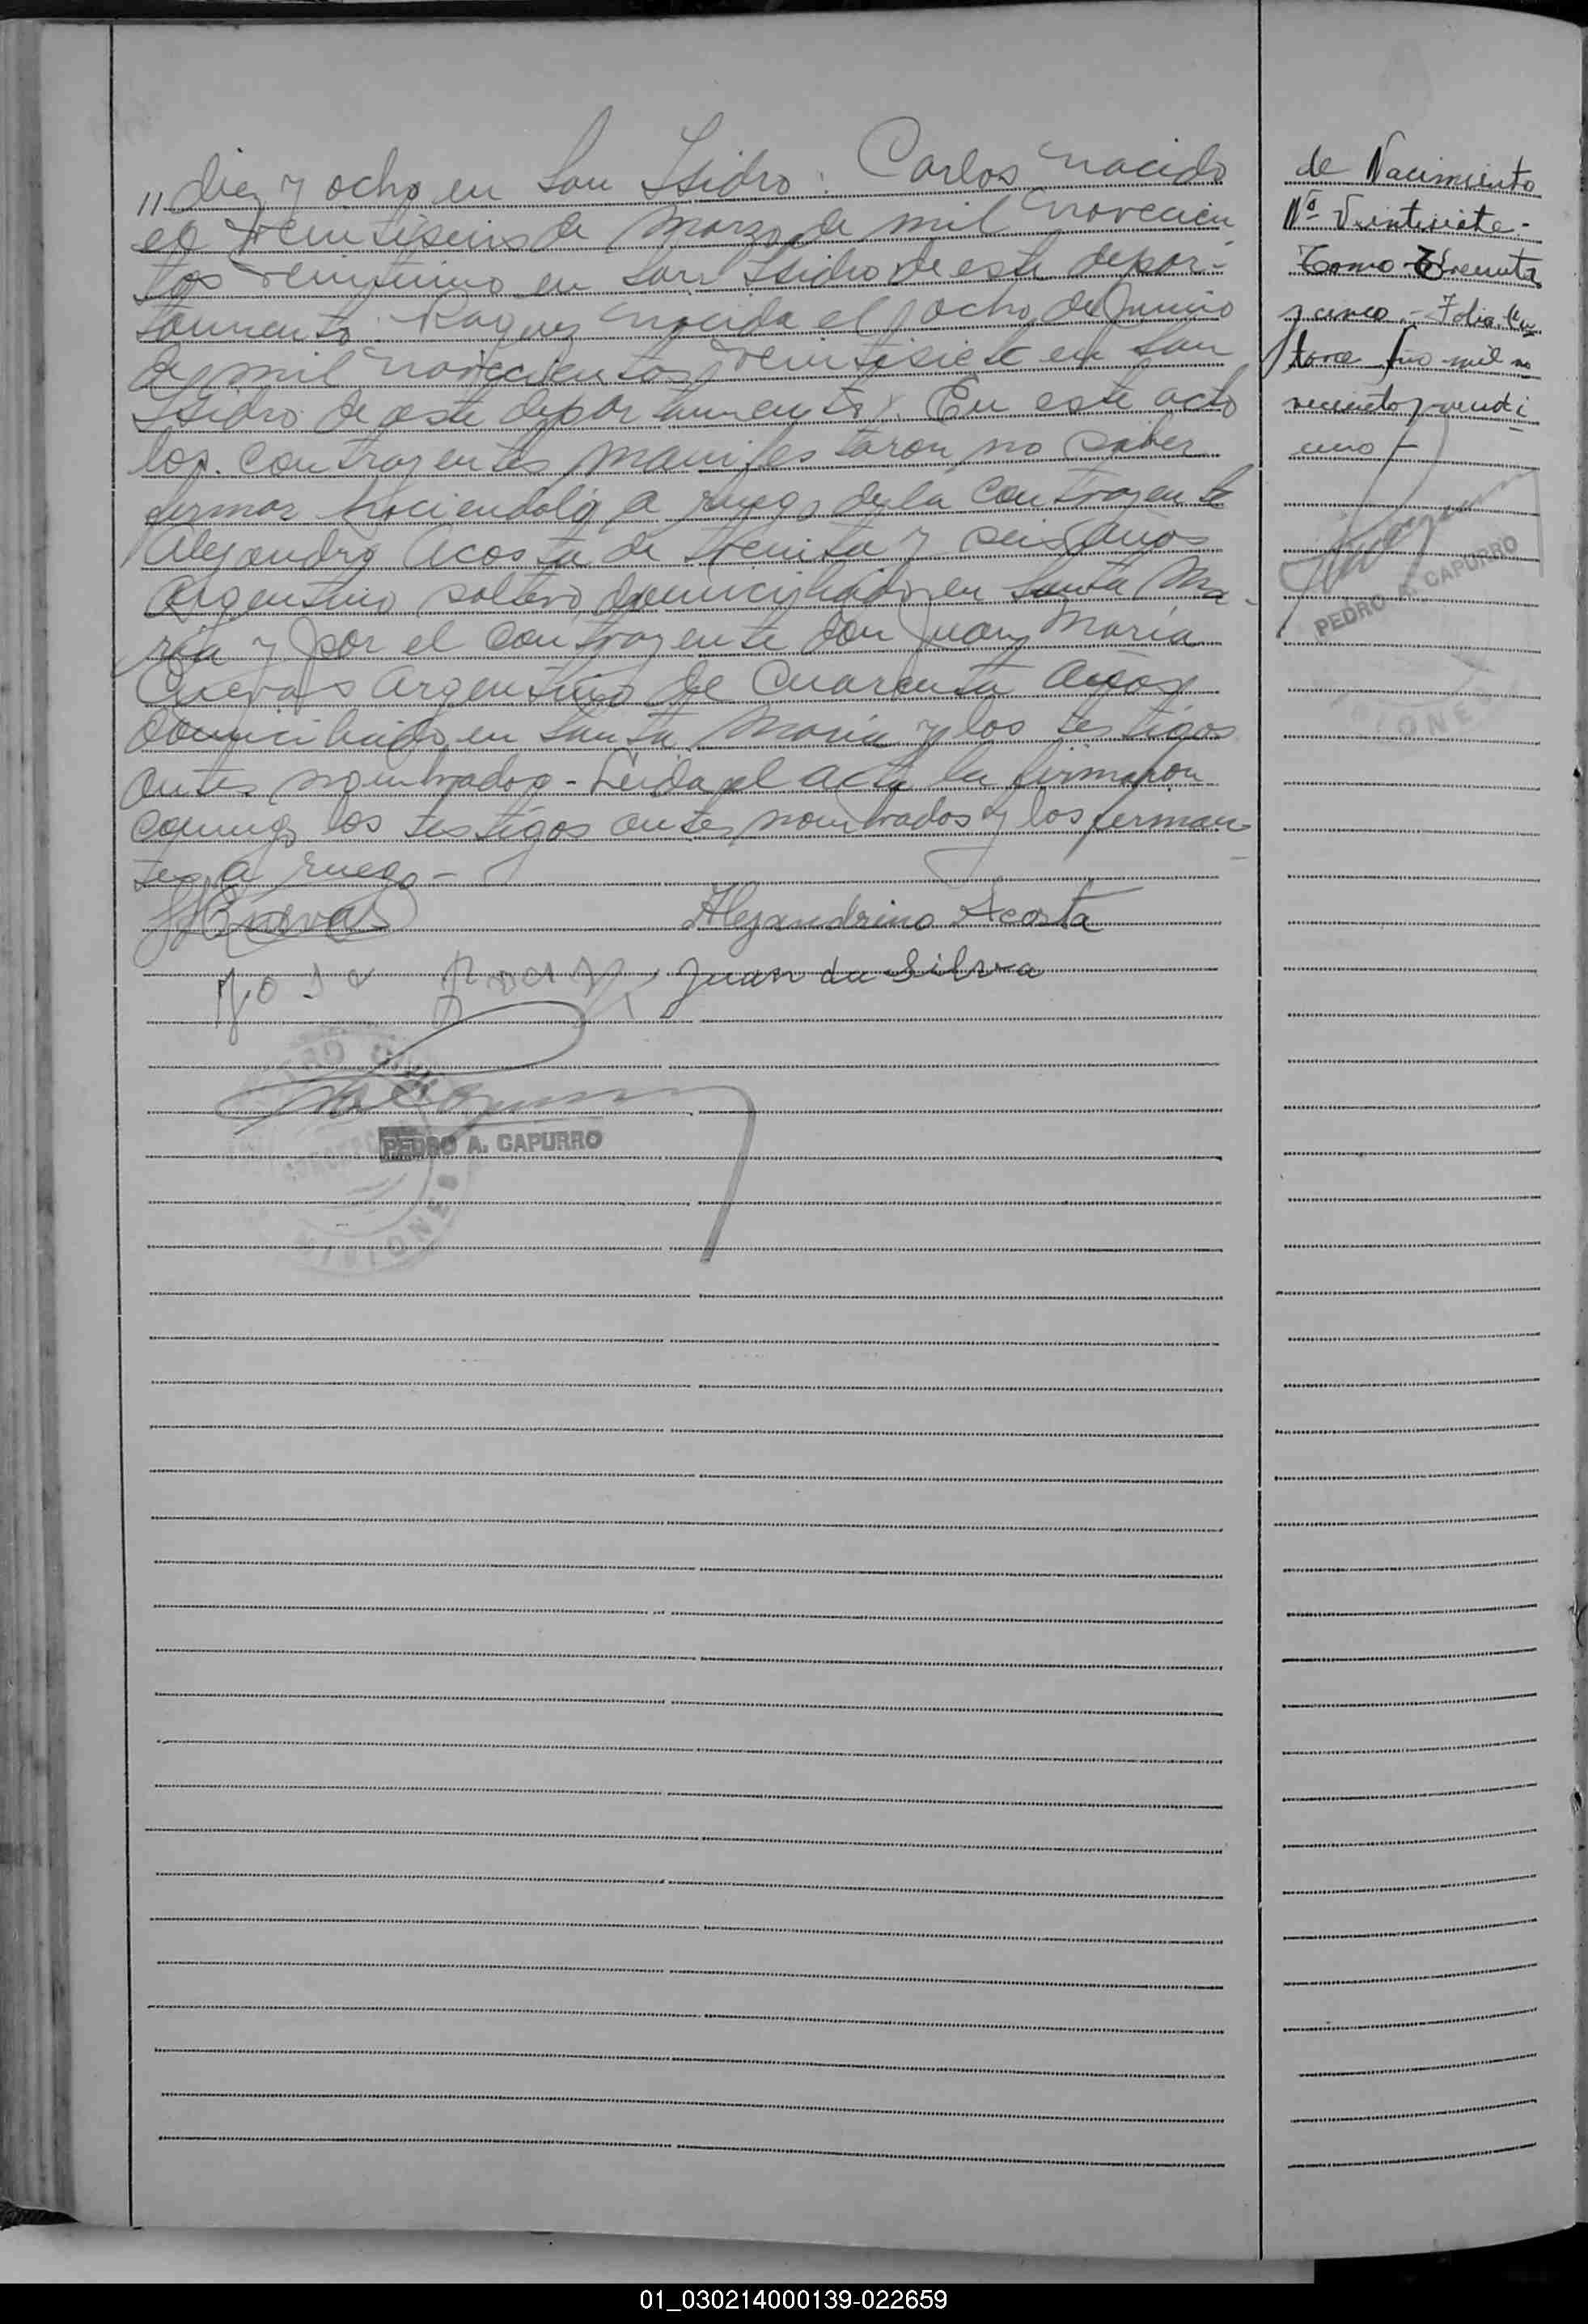 " diez y ocho en San Isidro: Carlos nacido
el veintiseis de Marzo de mil novecien
tos veintiuno en San Isidro de este depar-
tamento. nacida el ocho de Junio
de mil novecientos veintisiete en San
Isidro de este departamento. En este acto
los contrayentes manifestaron no saber
firmar haciendolo a ruego de la contrayente
Alejandro Acosta de treinta y seis años
Argentino soltero domiciliado en Santa Ma-
ria y por el contrayente Don Juan Maria
Cuevas argentino de cuarenta años
domiciliado en Santa Maria y los testigos
antes nombrados - Leida el acta la firmaron
conmigo los testigos antes nombrados y los firman
tes a ruego -
Cuevas Alejandrino Acosta
Juan da Silva
PEDRO A. CAPURRO
MISIONES
de Nacimiento
Nº Veintisiete -
Tomo Treinta
y cinco - Folio Ca
torce Año mil no
veciento veinti
uno -
PEDRO A. CAPURRO
IONES
01_030214000139-022659